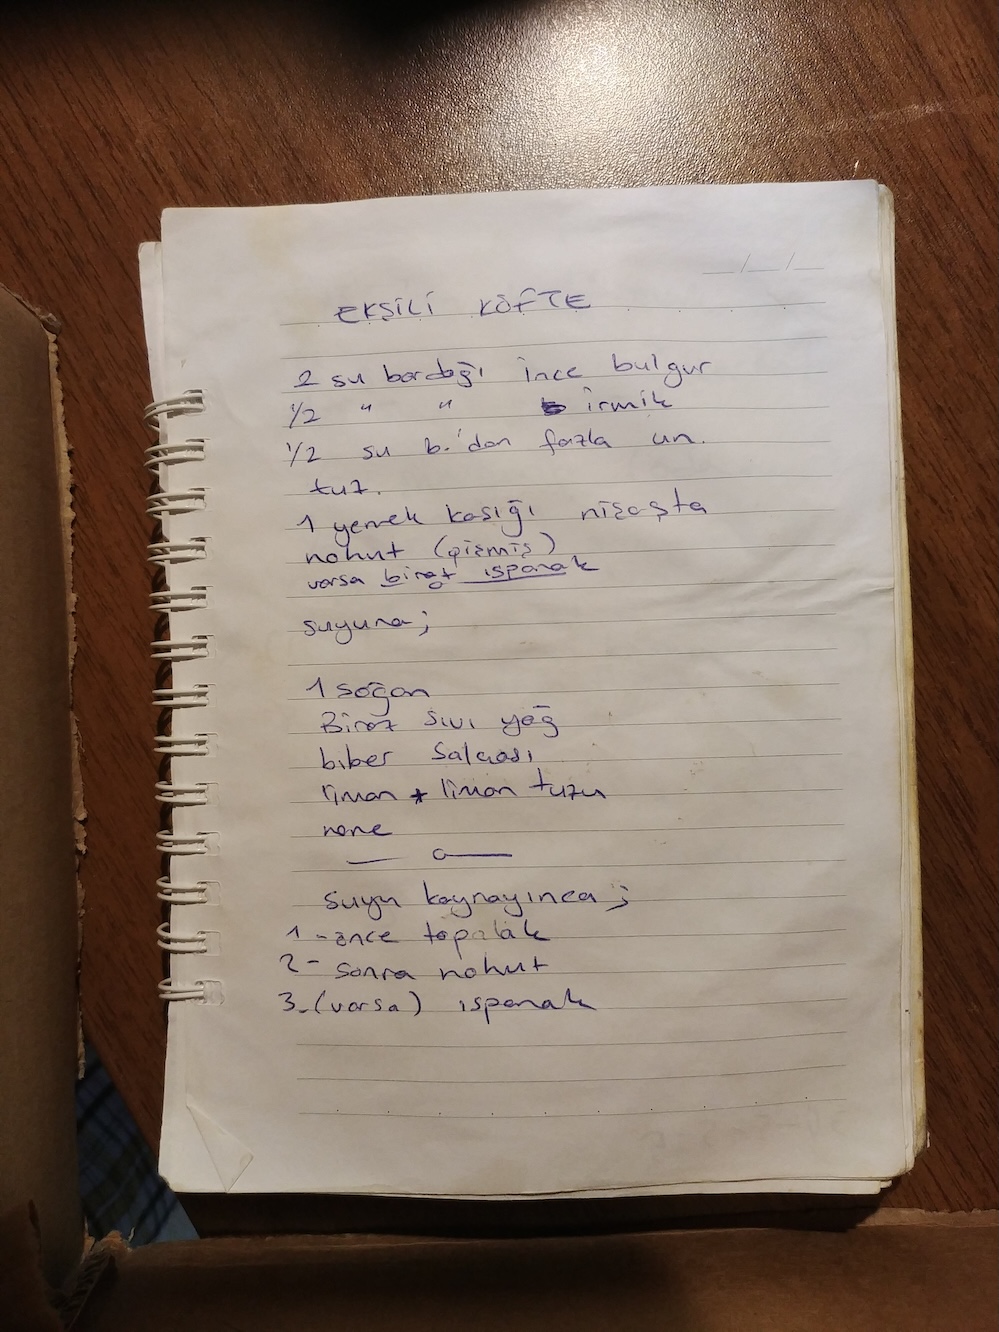 EKŞİLİ KÖFTE
2 su bardağı ince bulgur
1/2 " " irmik
1/2 su b.'dan fazla un.
tuz.
1 yemek kaşığı nişaşta
nohut (pişmiş)
varsa biraz ıspanak
suyuna;
1 soğan
Biraz sıvı yağ
biber salçası
limon + limon tuzu
nane
suyu kaynayınca;
1-önce topalak
2- sonra nohut
3-(varsa) ıspanak